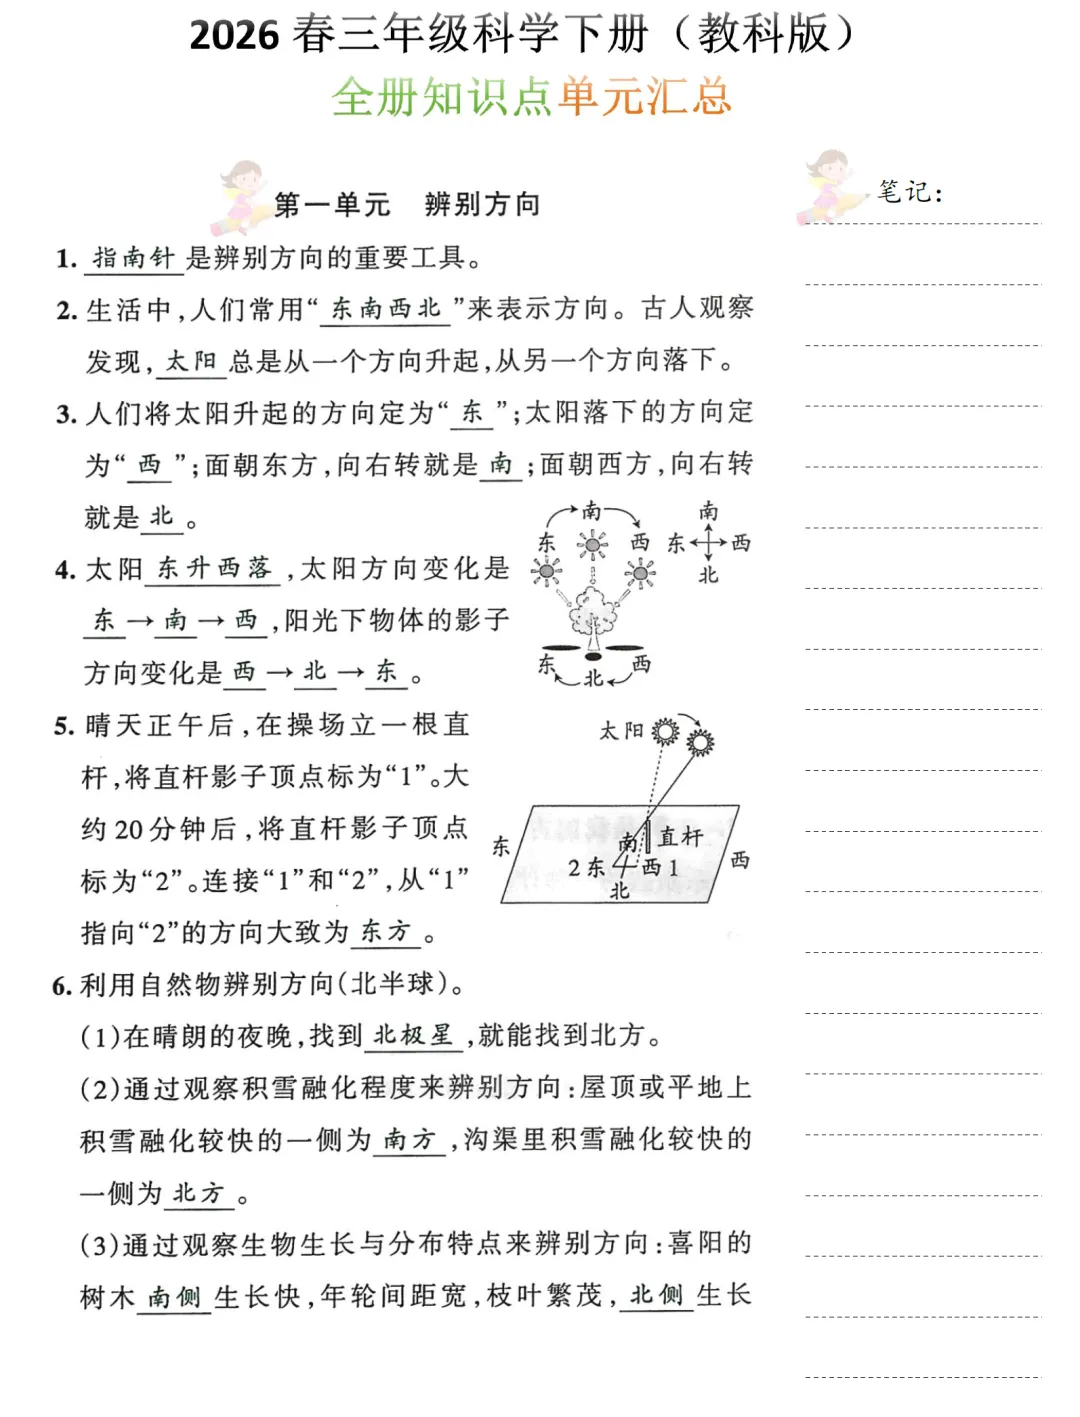 2026春三年级科学下册（教科版）
全册知识点单元汇总
第一单元 辨别方向
笔记：
1. 指南针是辨别方向的重要工具。
2. 生活中,人们常用“东南西北”来表示方向。古人观察
发现,太阳总是从一个方向升起,从另一个方向落下。
3. 人们将太阳升起的方向定为“东”;太阳落下的方向定
为“西”;面朝东方,向右转就是南;面朝西方,向右转
就是北。
4. 太阳东升西落,太阳方向变化是
东→南→西,阳光下物体的影子
方向变化是西→北→东。
南
东 西
东 西
北
南
东 西
北
5. 晴天正午后,在操场立一根直
杆,将直杆影子顶点标为“1”。大
约20分钟后,将直杆影子顶点
标为“2”。连接“1”和“2”,从“1”
指向“2”的方向大致为东方。
太阳
东
南 直杆
2东 西1
北
西
6. 利用自然物辨别方向(北半球)。
(1)在晴朗的夜晚,找到北极星,就能找到北方。
(2)通过观察积雪融化程度来辨别方向:屋顶或平地上
积雪融化较快的一侧为南方,沟渠里积雪融化较快的
一侧为北方。
(3)通过观察生物生长与分布特点来辨别方向:喜阳的
树木南侧生长快,年轮间距宽,枝叶繁茂,北侧生长